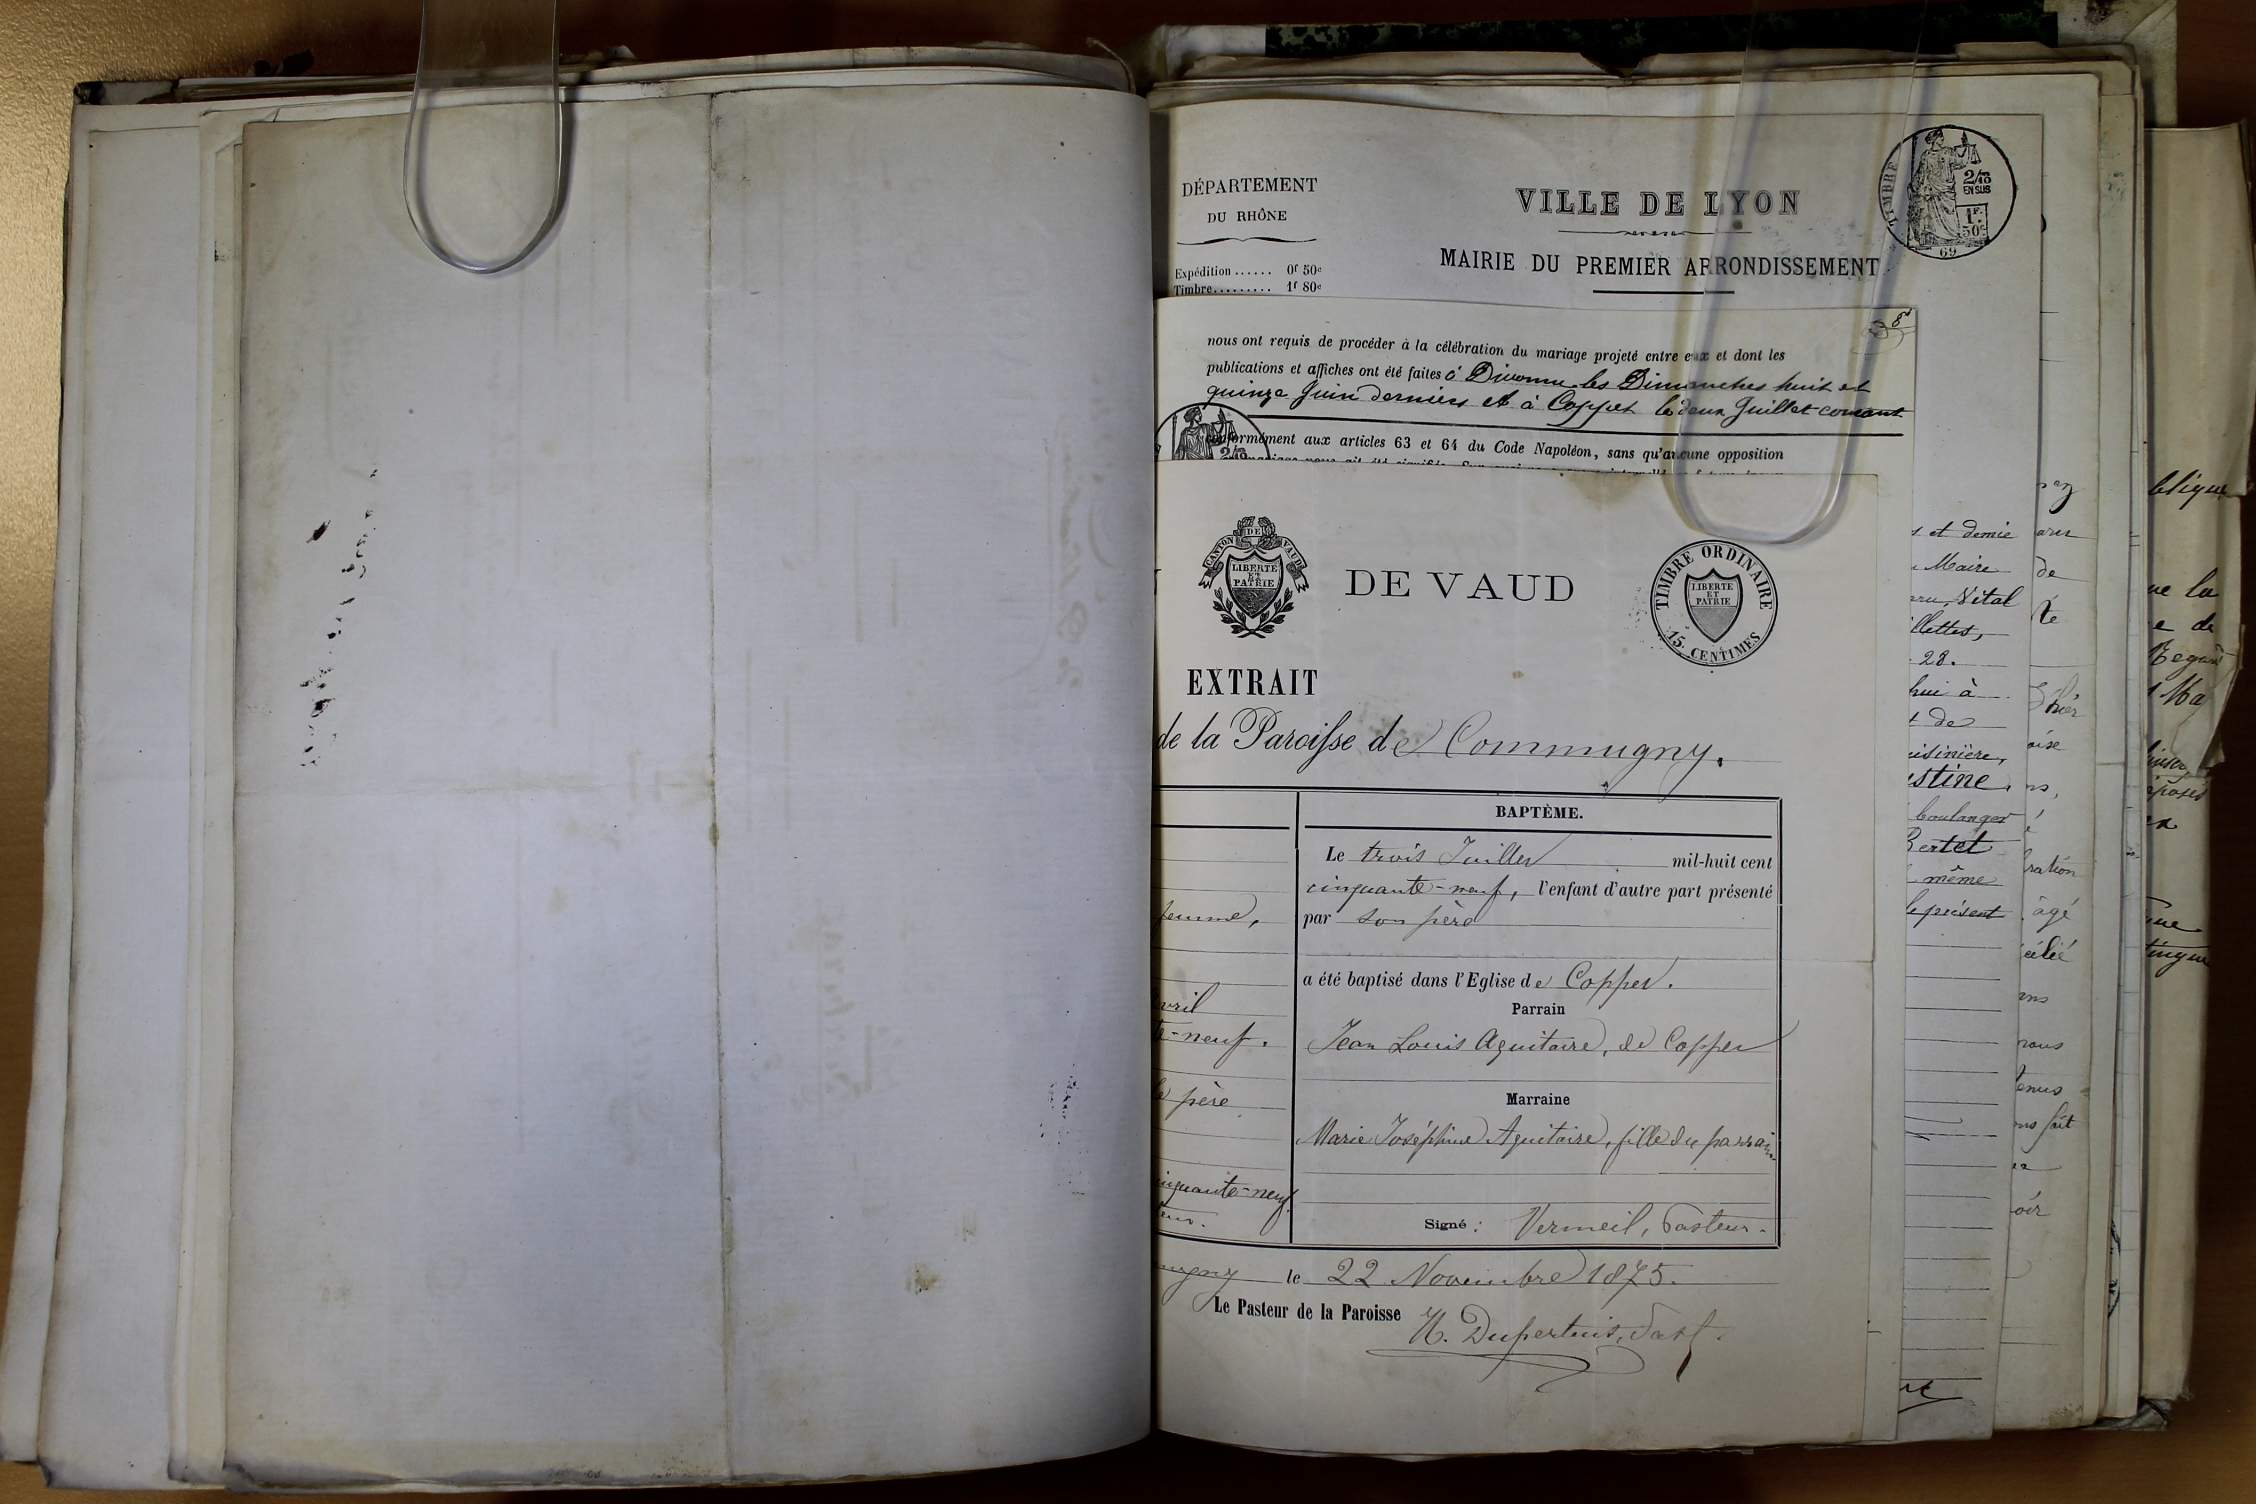 DÉPARTEMENT
DU RHÔNE
Expédition ...... 0f 50c
Timbre......... 1f 80c
VILLE DE LYON
MAIRIE DU PREMIER ARRONDISSEMENT
TIMBRE
2/10
EN SUS
1F.
50c
69
nous ont requis de procéder à la célébration du mariage projeté entre eux et dont les
publications et affiches ont été faites à Divonne les Dimanches huit et
quinze Juin derniers et à Coppet le deux Juillet courant
conformément aux articles 63 et 64 du Code Napoléon, sans qu'aucune opposition
2/10
CANTON DE VAUD
LIBERTÉ
ET
PATRIE
DE VAUD
TIMBRE ORDINAIRE
LIBERTE
ET
PATRIE
15. CENTIMES
EXTRAIT
de la Paroisse de Commugny.
BAPTÈME.
Le trois Juillet mil-huit cent
cinquante-neuf, l'enfant d'autre part présenté
par son père
a été baptisé dans l'Eglise de Coppet.
Parrain
Jean Louis Aquitaire, de Coppet
Marraine
Marie Joséphine Aquitaire, fille du parrain
Signé : Vermeil, Pasteur.
femme,
vril
-neuf.
père
inquante-neuf.
mugny le 22 Novembre 1875.
Le Pasteur de la Paroisse H. Dupertuis, Past.
et demie
Maire
Vital
llettes,
28.
hui à
de
uisinière,
stine
boulanger
Bertet
même
le présent
de
té
oise
ration
âgé
ns
nous
tenus
ns fait
oir
blique
ue la
e de
Ma